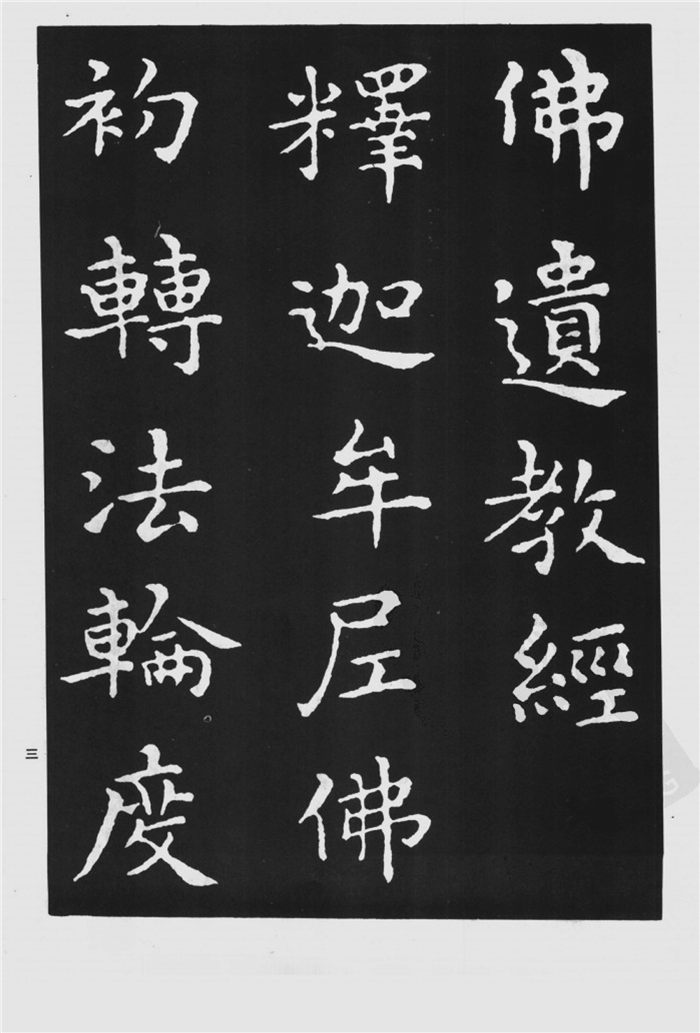 佛遺教經
釋迦牟尼佛
初轉法輪度
三